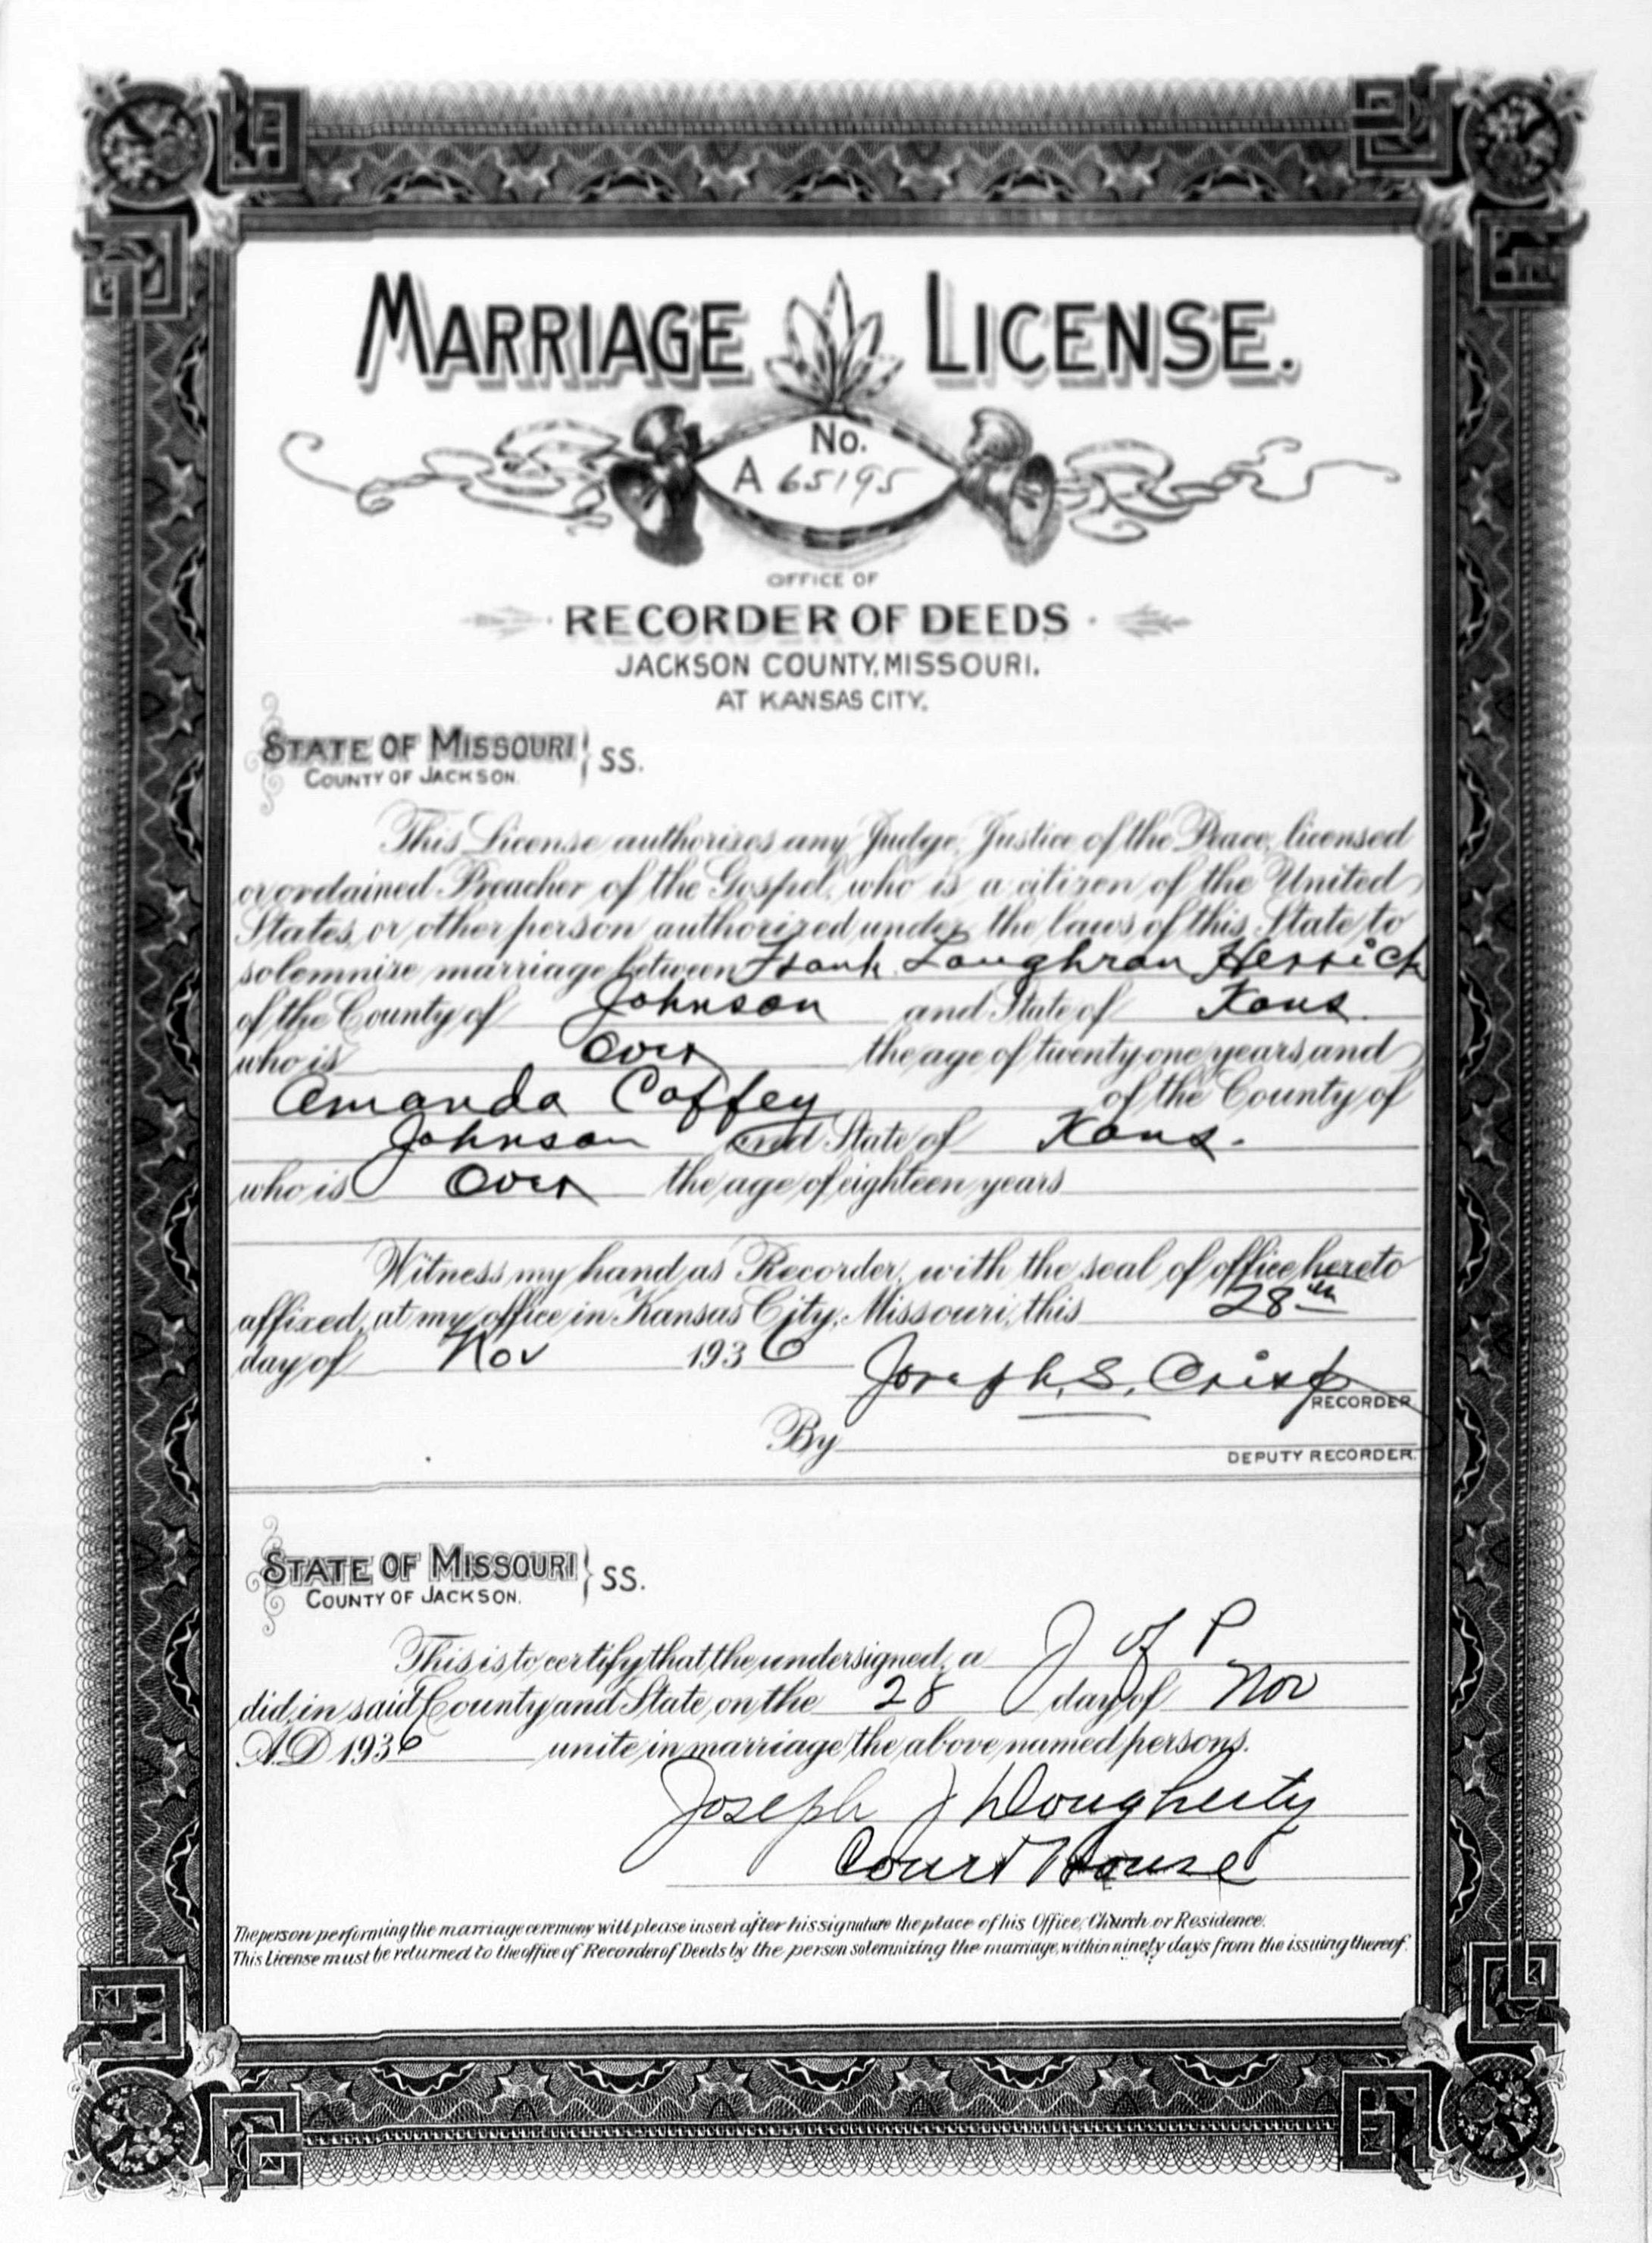 MARRIAGE LICENSE.
No.
A 65195
OFFICE OF
RECORDER OF DEEDS
JACKSON COUNTY, MISSOURI.
AT KANSAS CITY.
STATE OF MISSOURI } SS.
COUNTY OF JACKSON.
This License authorizes any Judge, Justice of the Peace, licensed
or ordained Preacher of the Gospel, who is a citizen of the United
States, or other person authorized under the laws of this State to
solemnize marriage between Frank Loughran Herrick
of the County of Johnson and State of Kans.
who is Over the age of twenty one years, and
Amanda Coffey of the County of
Johnson and State of Kans.
who is Over the age of eighteen years
Witness my hand as Recorder, with the seal of office hereto
affixed, at my office in Kansas City, Missouri, this 28th
day of Nov 1936 Joseph. S. Crisp
RECORDER
By
DEPUTY RECORDER.
STATE OF MISSOURI } SS.
COUNTY OF JACKSON.
This is to certify that the undersigned, a J of P
did, in said County and State, on the 28 day of Nov
A.D 1936 unite in marriage the above named persons.
Joseph J Dougherty
Court House
The person performing the marriage ceremony will please insert after his signature the place of his Office, Church or Residence.
This License must be returned to the office of Recorder of Deeds by the person solemnizing the marriage, within ninety days from the issuing thereof.